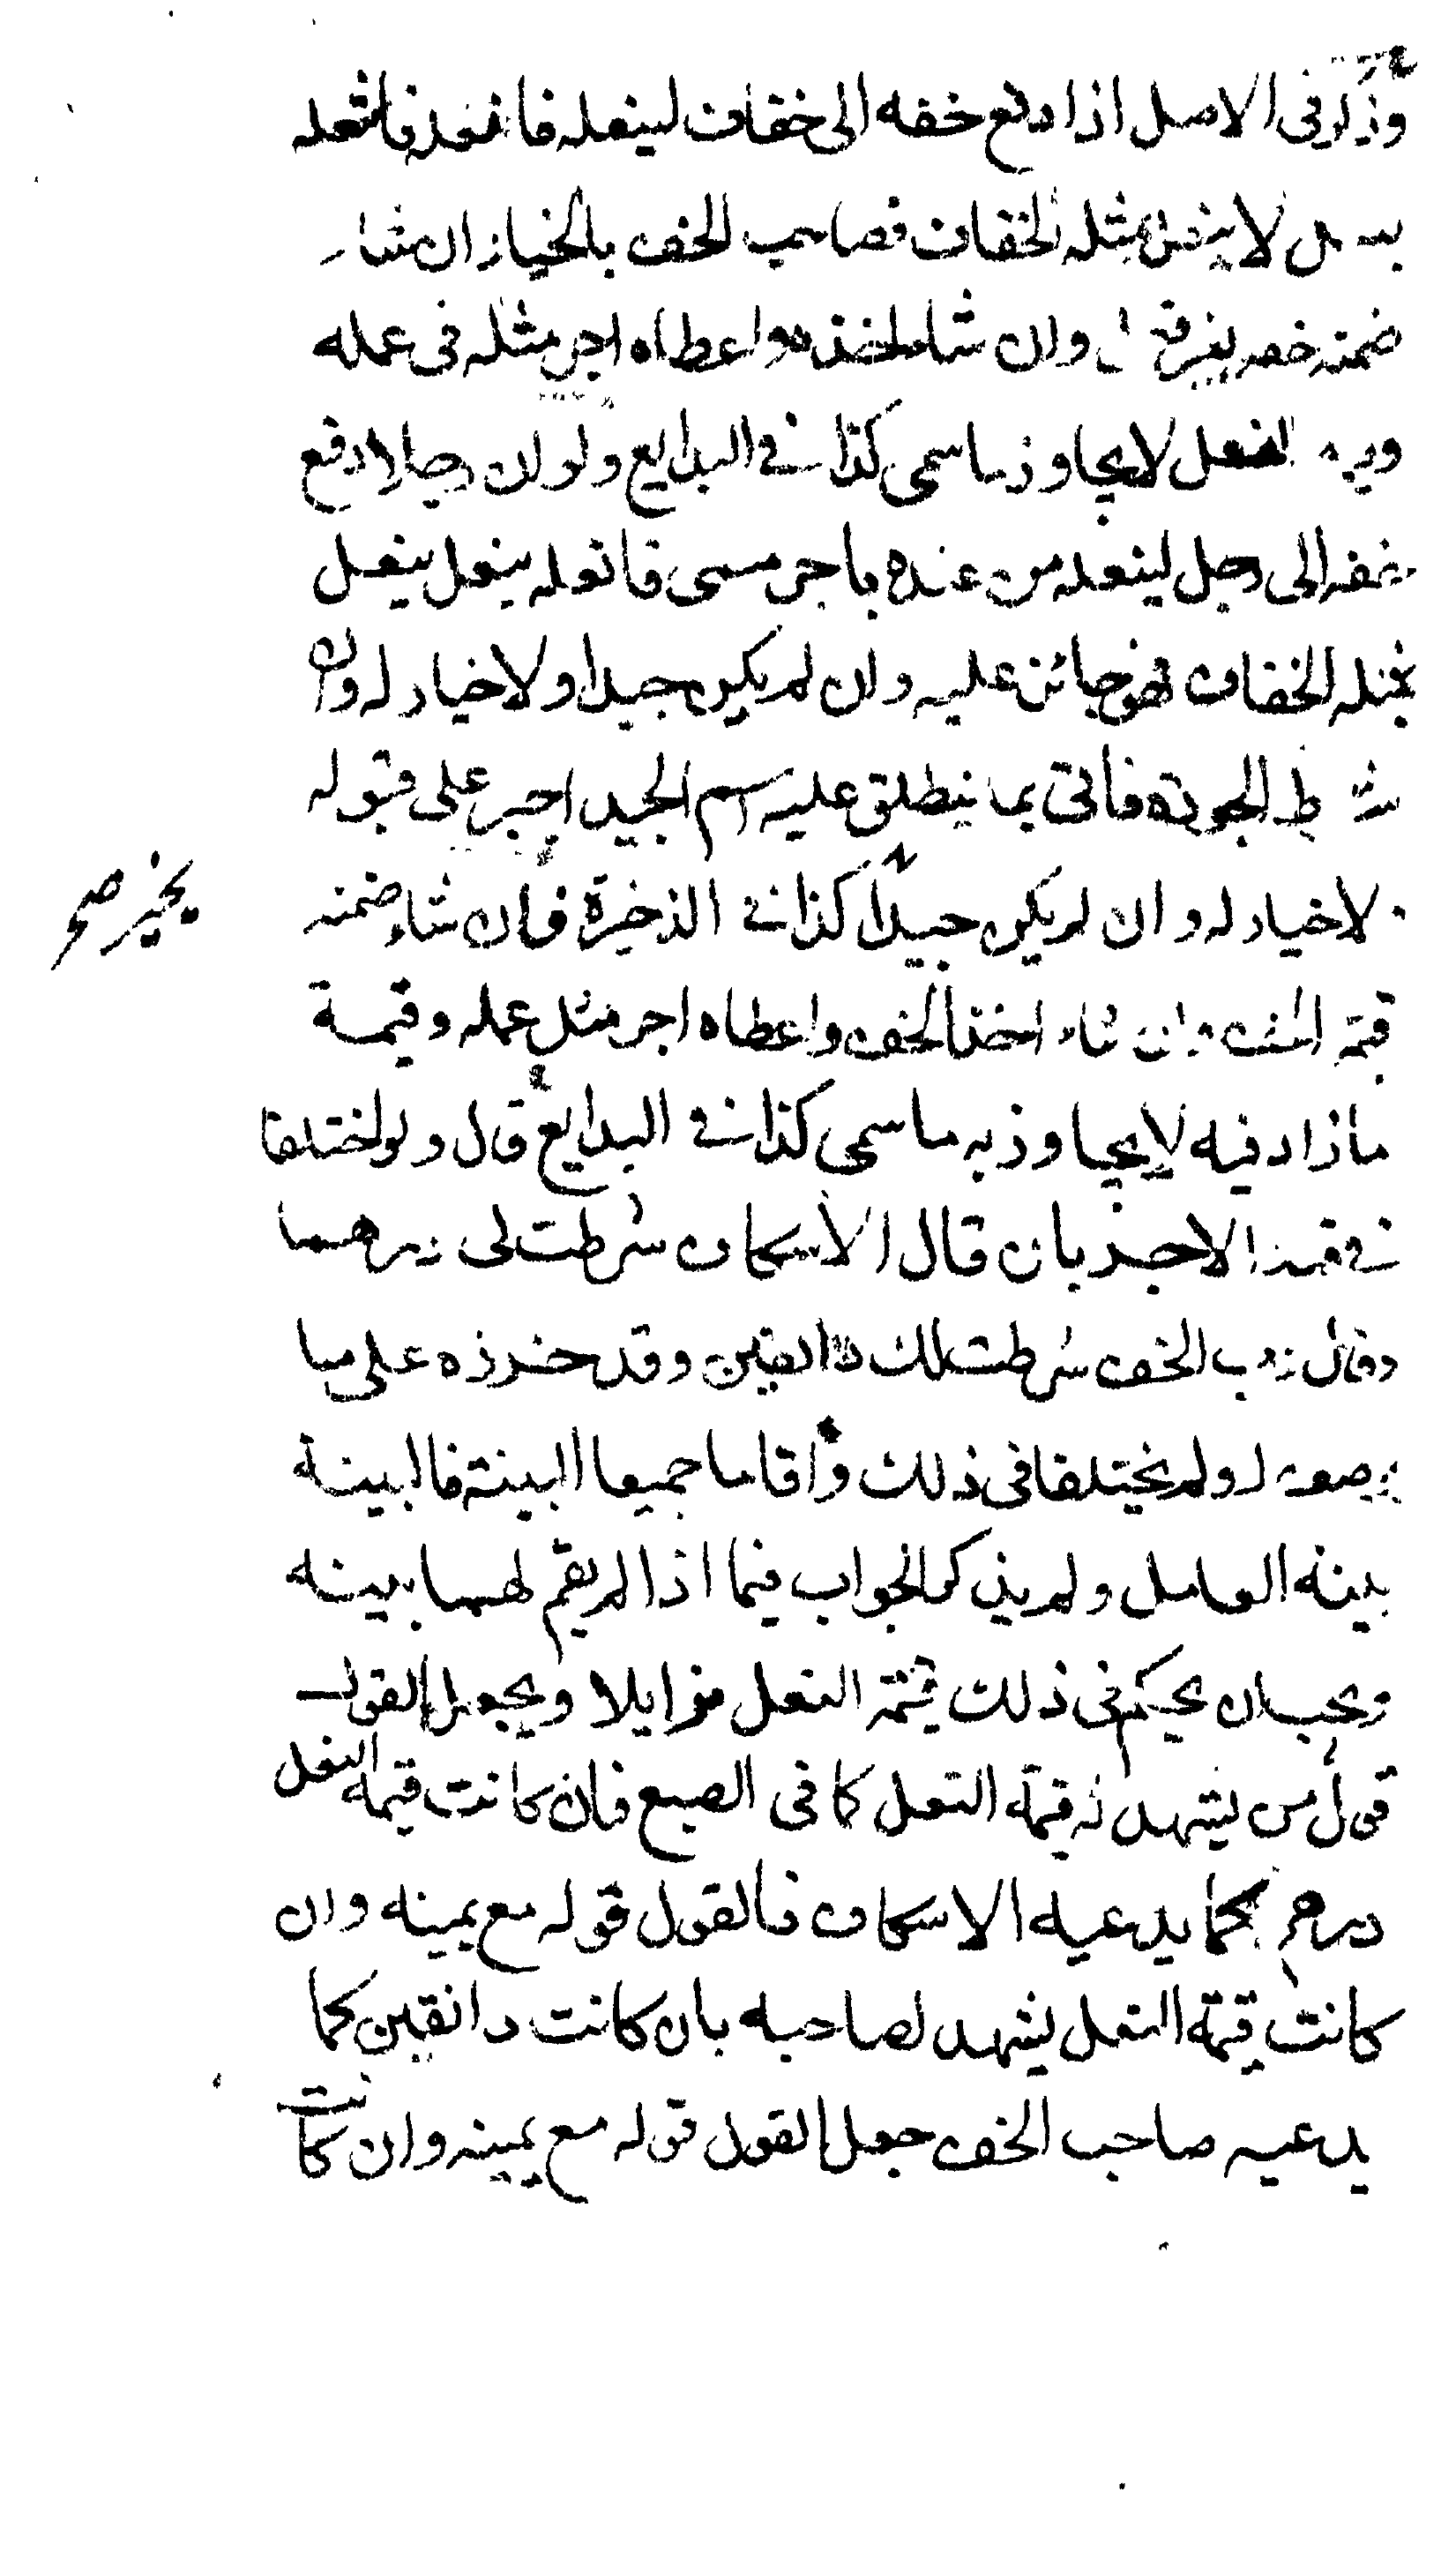 وذكر في الاصل اذا دفع خفه الى خفاف لينعله فانعله
لا ينعل بمثله الخفاف فصاحب الخف بالخيار ان شاء
ضمنه خفه بغير وان شاء اخذه واعطاه اجر مثله في عمله
النعل لا يجاوز ما سمى كذا في البدايع ولو ان رجلا دفع
خفه الى رجل لينعله من عنده باجر مسمى فانعله بنعل ينعل
بمثله الخفاف فهو جائز عليه وان لم يكن جيدا ولا خيار له وان
شرط الجودة فاتى بما ينطلق عليه اسم الجيد اجبر على قبوله
لا خيار له وان لم يكن جيدا كذا في الذخيرة فان شاء ضمنه
يخير صح
قيمة الخف وان شاء اخذ الخف واعطاه اجر مثل عمله وقيمة
ما زاد فيه لا يجاوز به ما سمى كذا في البدايع قال ولو اختلفا
في الاجر بان قال الاسكاف شرطت لي درهما
وقال رب الخف شرطت لك دانقين وقد خرزه على ما
ولم يختلفا في ذلك واقاما جميعا البينة فالبينة
بينة العامل ولم يذكر الجواب فيما اذا لم يقم لهما بينه
ويجب ان يحكم في ذلك قيمة النعل مزايلا ويجعل القول
قول من يشهد له قيمة النعل كما في الصبع فان كانت قيمة النعل
درهم كما يدعيه الاسكاف فالقول قوله مع يمينه وان
كانت قيمة النعل يشهد لصاحبه بان كانت دانقين كما
يدعيه صاحب الخف جعل القول قوله مع يمينه وان كانت